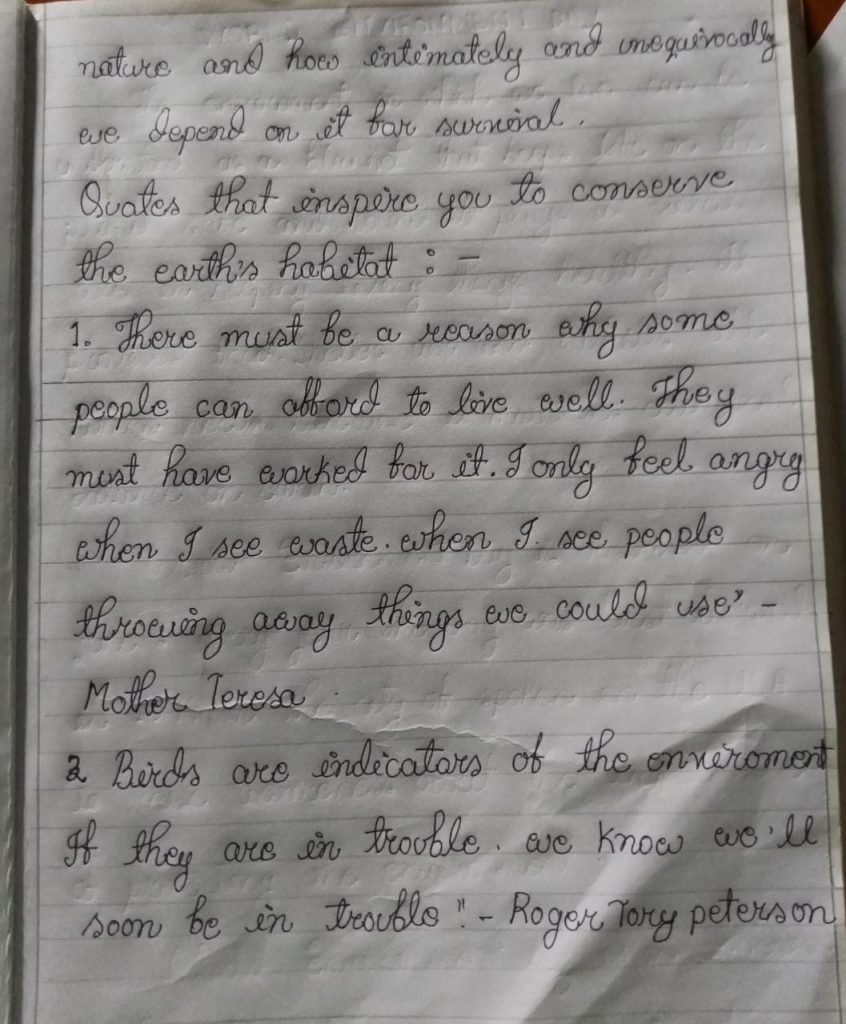 nature and how intimately and unequivocally
we depend on it for survival.
Quates that inspire you to conserve
the earth's habitat : -
1. There must be a reason why some
people can afford to live well. They
must have worked for it. I only feel angry
when I see waste. when I. see people
throwing away things we could use" -
Mother Teresa
2 Birds are indicators of the enveroment
If they are in trouble. we know we'll
soon be in trouble". - Roger Tory peterson